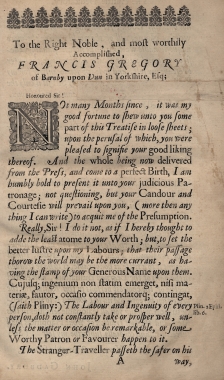 To the Right Noble, and most worthily
Accomplished,
FRANCIS GREGORY
of Barnby upon Dun in Yorkshire, Esq;
Honoured Sir!
NOt many Months since, it was my
good fortune to shew unto you some
part of this Treatise in loose sheets;
upon the perusal of which, you were
pleased to signifie your good liking
thereof. And the whole being now delivered
from the Press, and come to a perfect Birth, I am
humbly bold to present it unto your judicious Pa-
tronage; not questioning, but your Candour and
Courtesie will prevail upon you, (more then any
thing I can write) to acquit me of the Presumption.
Really, Sir! I do it not, as if I hereby thought to
adde the least atome to your Worth; but, to set the
better lustre upon my Labours; that their passage
thorow the world may be the more currant, as ha-
ving the stamp of your Generous Name upon them.
Cujusq; ingenium non statim emerget, nisi ma-
teriæ, fautor, occasio commendatorq; contingat,
(saith Pliny:) The Labour and Ingenuity of every
person, doth not constantly take or prosper well, un-
less the matter or occasion be remarkable, or some
Worthy Patron or Favourer happen to it.
The Strangur-Traveller passeth the safer on his
A
way,